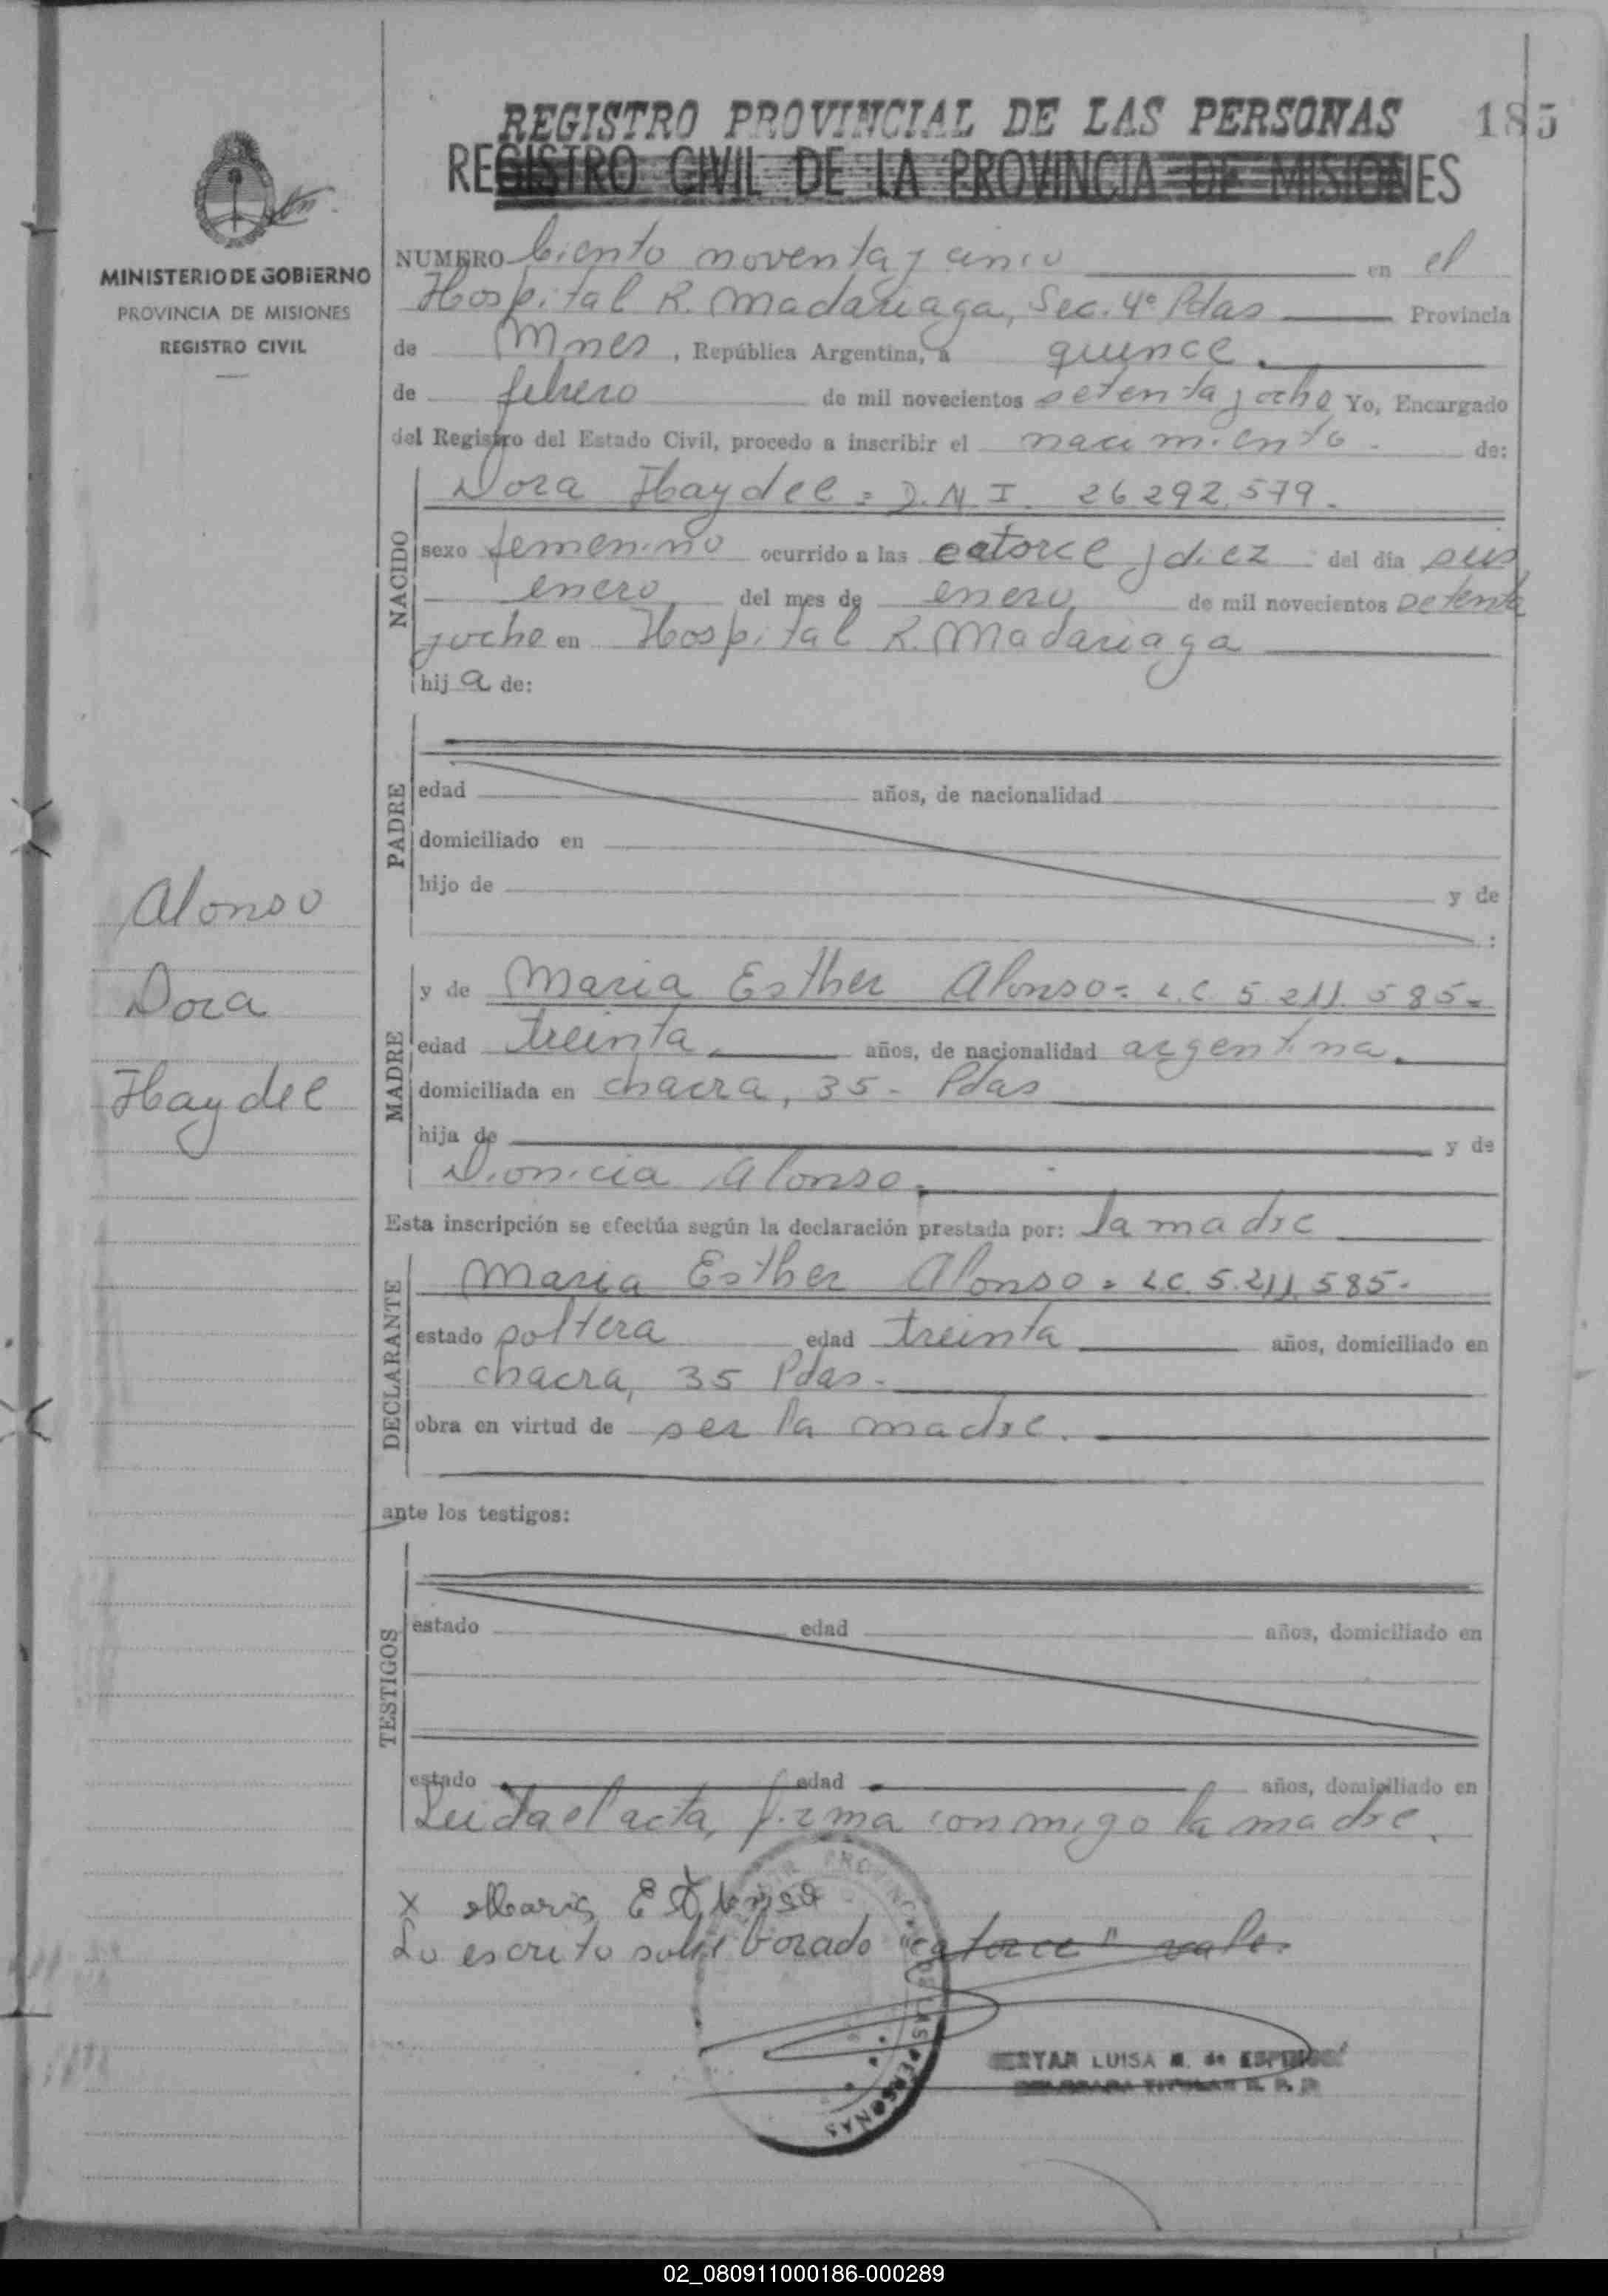 REGISTRO PROVINCIAL DE LAS PERSONAS
185
REGISTRO CIVIL DE LA PROVINCIA DE MISIONES
MINISTERIO DE GOBIERNO
PROVINCIA DE MISIONES
REGISTRO CIVIL
NUMERO Ciento noventa y cinco en el
Hospital R. Madariaga, Sec. 4º Pdas Provincia
de Mnes, República Argentina, a quince.
de febrero de mil novecientos setenta y ocho Yo, Encargado
del Registro del Estado Civil, procedo a inscribir el nacimiento. de:
NACIDO
Dora Haydee = D.N.I. 26.292.579.
sexo femenino ocurrido a las catorce y diez del día seis
enero del mes de enero de mil novecientos setenta
y ocho en Hospital R. Madariaga
hija de:
PADRE
edad años, de nacionalidad
domiciliado en
hijo de y de
:
Alonso
Dora
Haydee
MADRE
y de Maria Esther Alonso = L.C. 5.211.585=
edad treinta años, de nacionalidad argentina.
domiciliada en chacra, 35 - Pdas
hija de y de
Dionicia Alonso.
Esta inscripción se efectúa según la declaración prestada por: la madre
DECLARANTE
Maria Esther Alonso = L.C. 5.211.585.
estado soltera edad treinta años, domiciliado en
chacra, 35 Pdas.
obra en virtud de ser la madre.
ante los testigos:
TESTIGOS
estado edad años, domiciliado en
estado edad años, domiciliado en
Leida el acta, firma conmigo la madre.
x Maria E Alonso
Lo escrito sobre borado "catorce" vale.
PROVINCIAL DE LAS PERSONAS
LUISA M. de
02_080911000186-000289